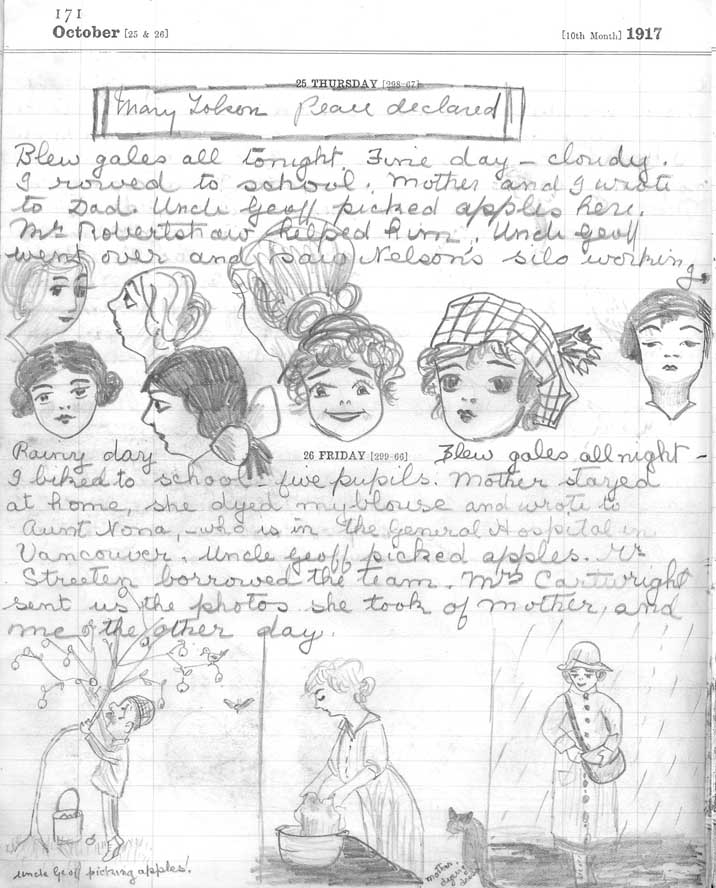 171
October [25 & 26] [10th Month] 1917
25 THURSDAY [298-67]
Mary Tobson Peace declared
Blew gales all tonight. Fine day - cloudy.
I rowed to school. Mother and I wrote
to Dad. Uncle Geoff picked apples here.
Mr Robertshaw helped him. Uncle Geoff
went over and saw Nelson's silo working.
Rainy day 26 FRIDAY [299-66] Blew gales all night -
I biked to school - five pupils. Mother stayed
at home, she dyed my blouse and wrote to
Aunt Nona, - who is in the General Hospital in
Vancouver. Uncle Geoff picked apples. Mr
Streeten borrowed the team. Mrs Cartwright
sent us the photos she took of mother, and
me the other day.
Uncle Geoff picking apples!
Mother